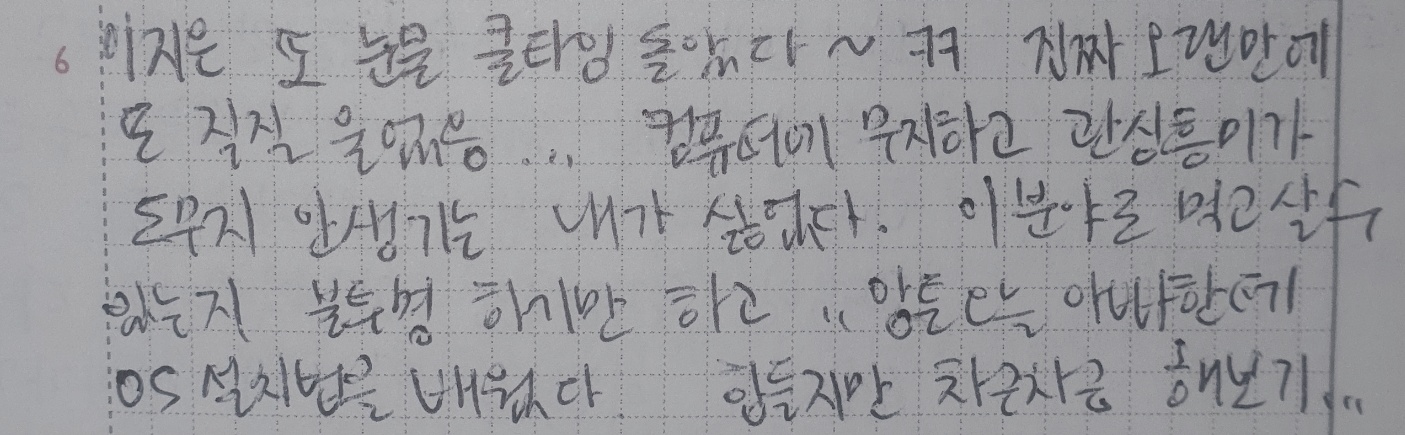 6 이지은 또 눈물 쿨타임 돌았다 ~ ㅋㅋ 진짜 오랜만에
또 질질 울었음 ... 컴퓨터에 무지하고 관심흥미가
도무지 안생기는 내가 싫었다. 이분야로 먹고살수
있는지 불투명 하기만 하고 .. 암튼 오늘 아빠한테
OS 설치법을 배웠다 힘들지만 차근차근 해보기...